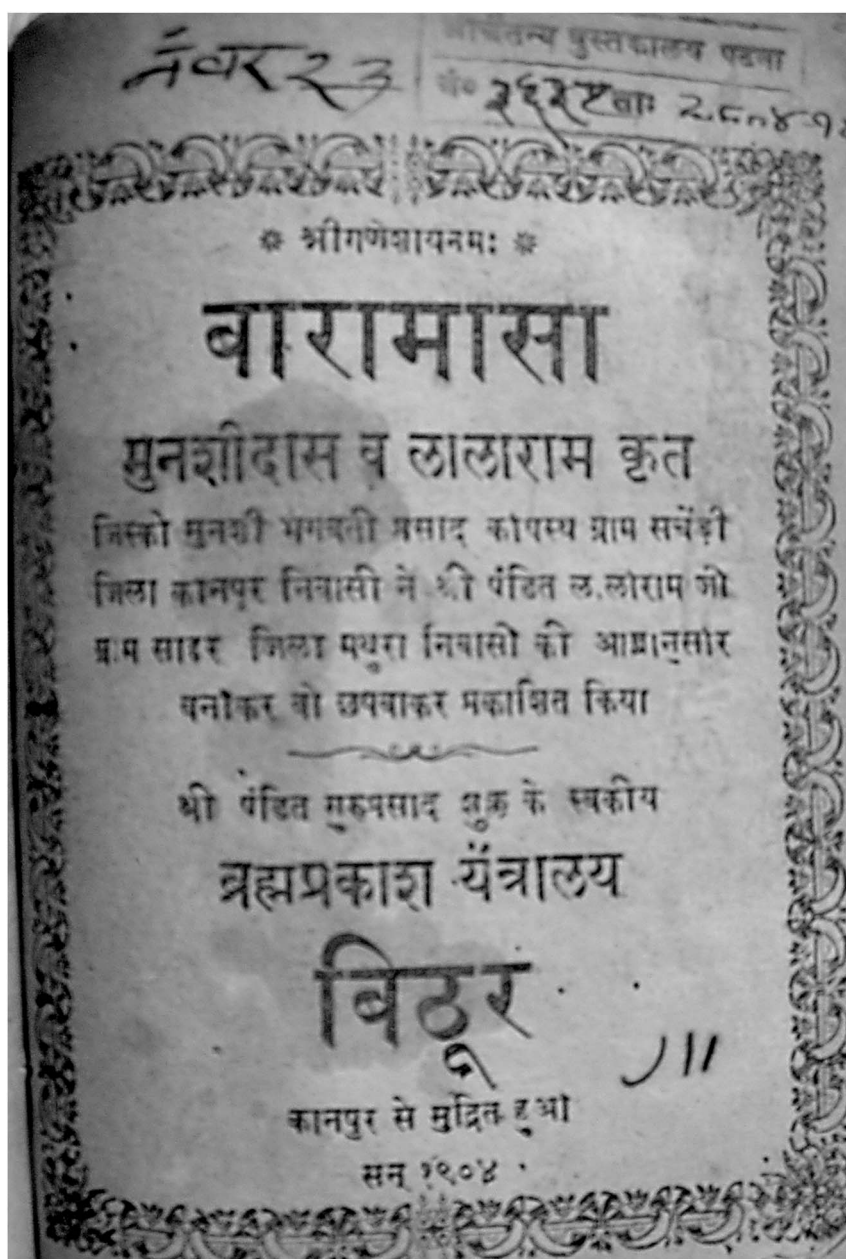 नंबर २३
श्रीचैतन्य पुस्तकालय पटना
नं० ३६३९ ताः
❉ श्रीगणेशायनमः ❉
बारामासा
मुनशीदास व लालाराम कृत
जिसको मुनशी भगवती प्रसाद कायस्थ ग्राम सचेंड़ी
जिला कानपुर निवासी ने श्री पंडित ल.लाराम जी
ग्राम सादर जिला मथुरा निवासी की आज्ञानुसार
बनाकर वो छपवाकर प्रकाशित किया
श्री पंडित गुरुप्रसाद शुक्ल के स्वकीय
ब्रह्मप्रकाश यंत्रालय
बिठूर
कानपुर से मुद्रित हुआ
सन् १९०४